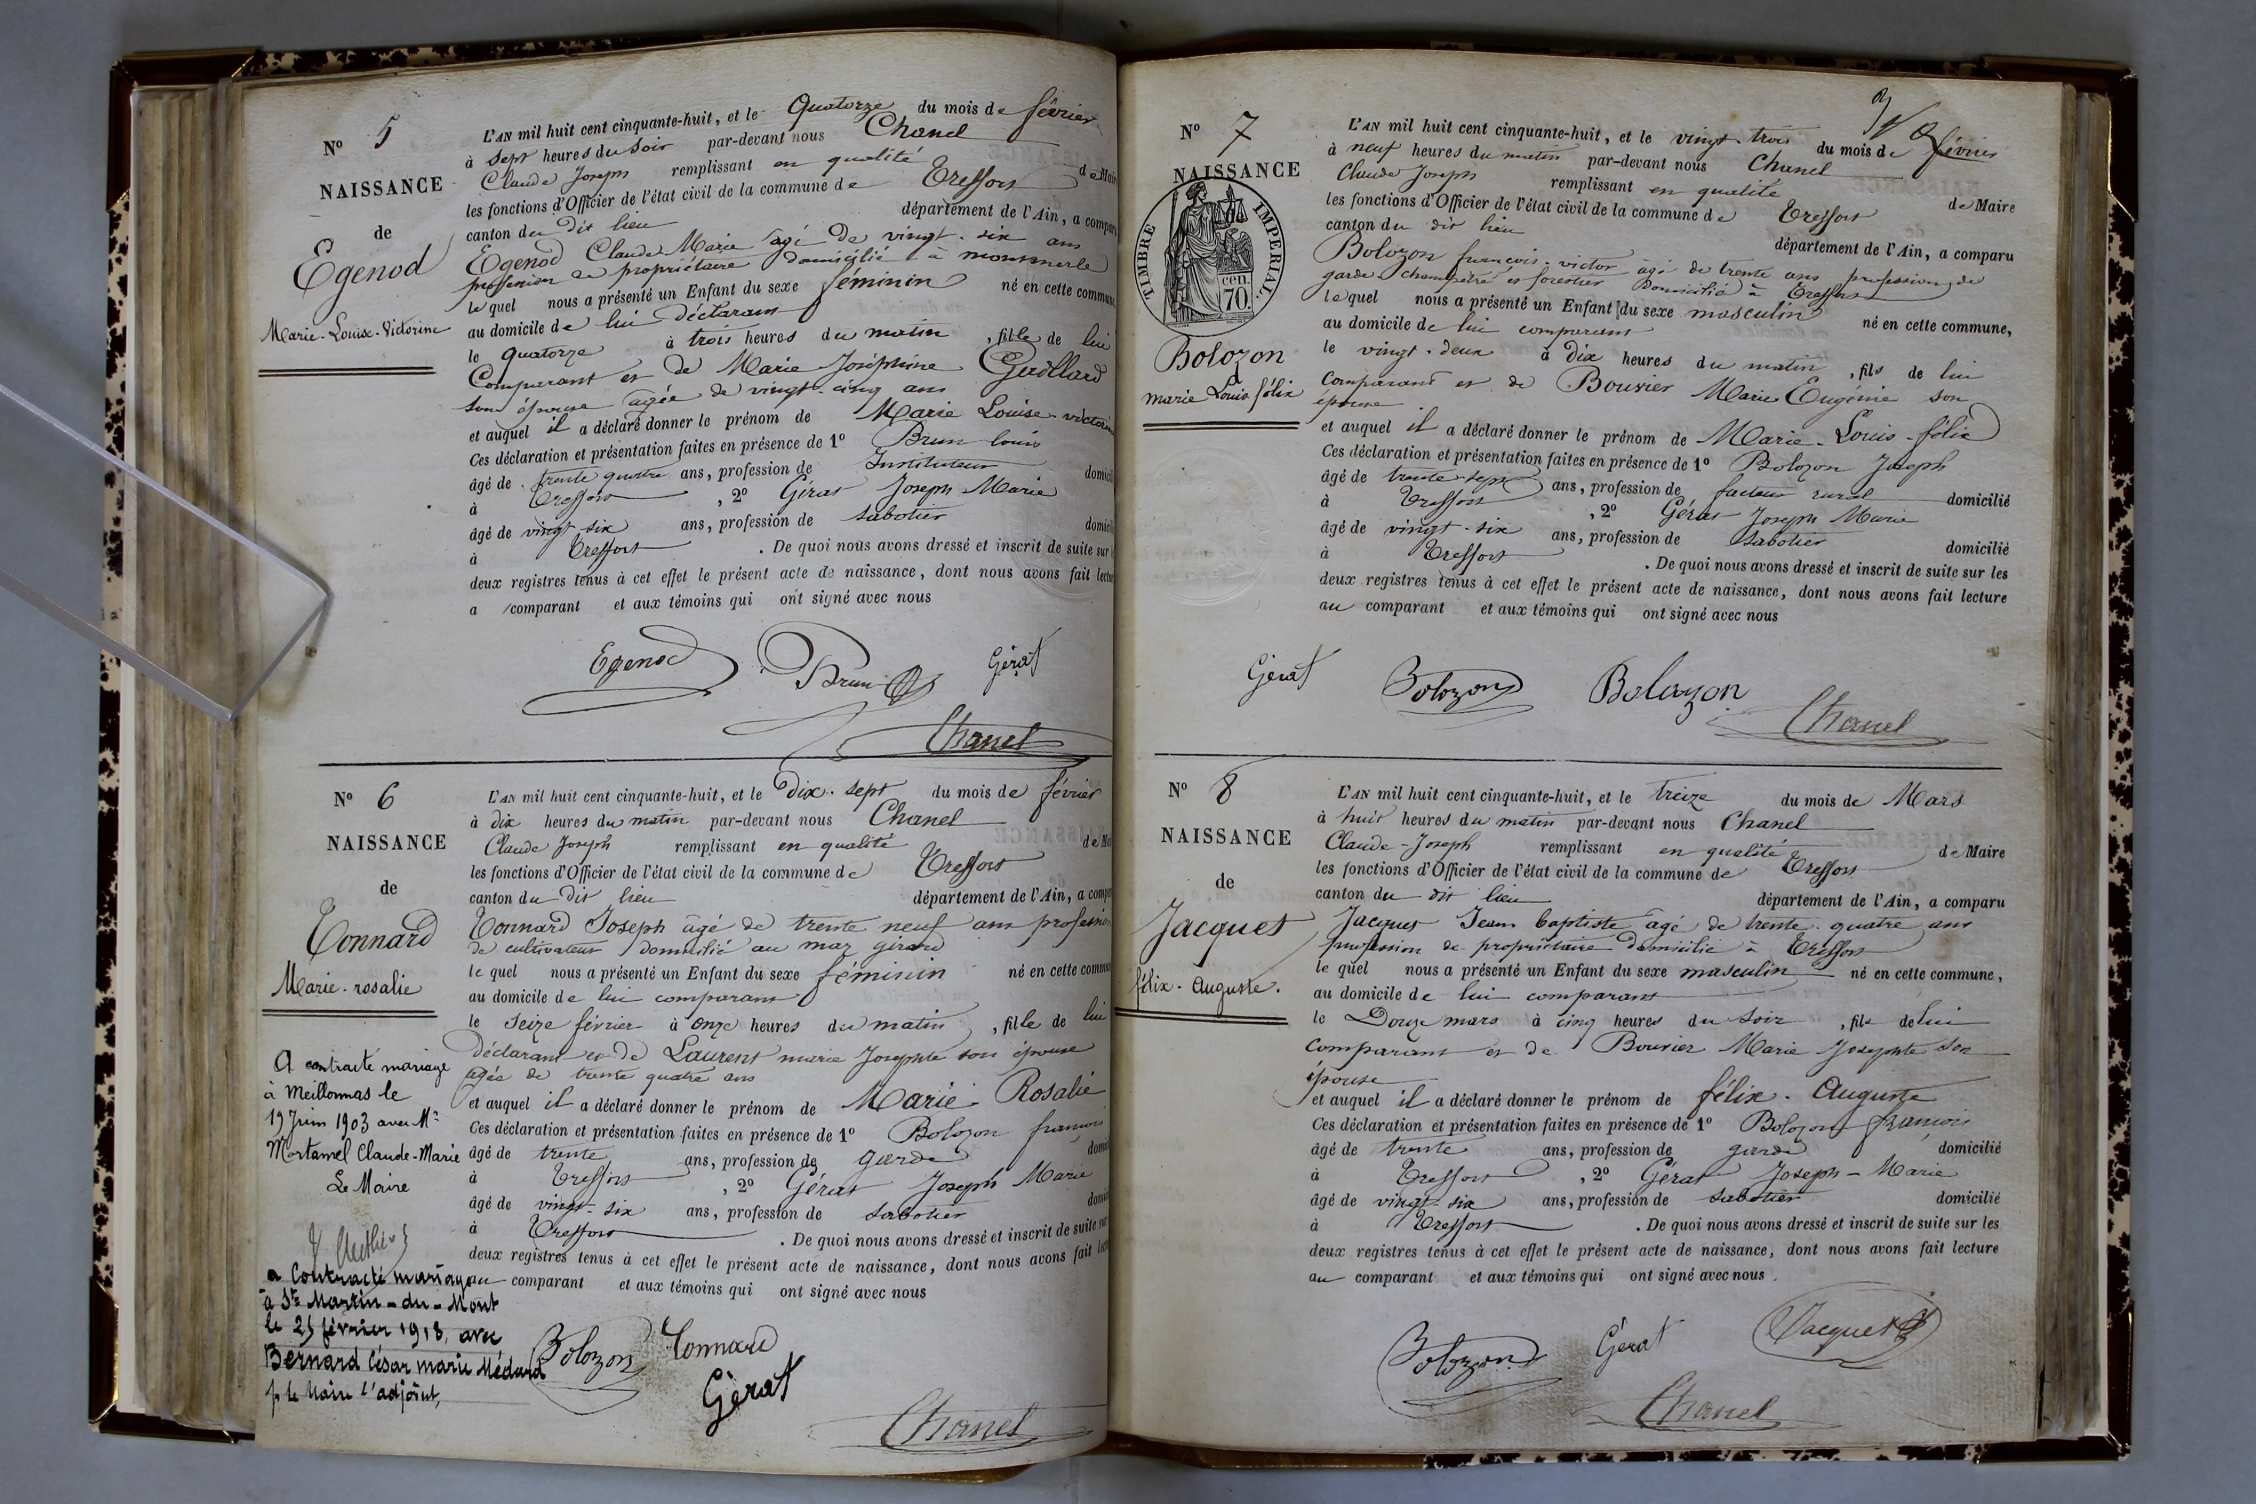 N° 5
NAISSANCE
de
Egenod
Marie-Louise-Victorine
L'AN mil huit cent cinquante-huit, et le Quatorze du mois de février
à sept heures du soir par-devant nous Chanel
Claude Joseph remplissant en qualité de Maire
les fonctions d'Officier de l'état civil de la commune de Treffort
canton du dit lieu département de l'Ain, a comparu
Egenod Claude Marie âgé de vingt-six ans
profession de propriétaire domicilié à
le quel nous a présenté un Enfant du sexe féminin né en cette commune
au domicile de lui déclarant
le quatorze à trois heures du matin, fille de lui
Comparant et de Marie Joséphine
son épouse âgée de vingt-cinq ans
et auquel il a déclaré donner le prénom de Marie Louise-victorine
Ces déclaration et présentation faites en présence de 1° Brun louis
âgé de trente quatre ans, profession de Instituteur domicilié
à Treffort, 2° Gérat Joseph Marie
âgé de vingt-six ans, profession de sabotier domicilié
à Treffort. De quoi nous avons dressé et inscrit de suite sur
deux registres tenus à cet effet le présent acte de naissance, dont nous avons fait lecture
a comparant et aux témoins qui ont signé avec nous
Egenod Brun Gérat
Chanel
N° 6
NAISSANCE
de
Tonnard
Marie-rosalie
L'AN mil huit cent cinquante-huit, et le Dix-sept du mois de février
à dix heures du matin par-devant nous Chanel
Claude Joseph remplissant en qualité de Maire
les fonctions d'Officier de l'état civil de la commune de Treffort
canton du dit lieu département de l'Ain, a comparu
Tonnard Joseph âgé de trente neuf ans profession
de cultivateur domicilié au maz girard
le quel nous a présenté un Enfant du sexe féminin né en cette commune
au domicile de lui comparant
le seize février à onze heures du matin, fille de lui
déclarant et de Laurent marie Josephte son épouse
agée de trente quatre ans
et auquel il a déclaré donner le prénom de Marie Rosalie
Ces déclaration et présentation faites en présence de 1° Bolozon francois
âgé de trente ans, profession de garde
à Treffort, 2° Gérat Joseph Marie
âgé de vingt-six ans, profession de sabotier
à Treffort. De quoi nous avons dressé et inscrit de suite sur
deux registres tenus à cet effet le présent acte de naissance, dont nous avons fait lecture
au comparant et aux témoins qui ont signé avec nous
A contracté mariage
à Meillonnas le
19 Juin 1903 avec Mr
Mortamel Claude-Marie
Le Maire
a Contracté mariage
à St Martin-du-Mont
le 25 février 1918, avec
Bernard César marie Médard
p. le Maire l'adjoint,
Bolozon Tonnard
Gérat
Chanel
N° 7
NAISSANCE
TIMBRE IMPERIAL
70 cen.
Bolozon
marie Louis félix
L'AN mil huit cent cinquante-huit, et le vingt-trois du mois de février
à neuf heures du matin par-devant nous Chanel
Claude Joseph remplissant en qualité de Maire
les fonctions d'Officier de l'état civil de la commune de Treffort
canton du dit lieu département de l'Ain, a comparu
Bolozon francois-victor âgé de trente ans profession de
garde champêtre et forestier domicilié à Treffort
le quel nous a présenté un Enfant du sexe masculin né en cette commune,
au domicile de lui comparant
le vingt-deux à dix heures du matin, fils de lui
Comparant et de Bouvier Marie Eugénie son
épouse
et auquel il a déclaré donner le prénom de Marie-Louis-félix
Ces déclaration et présentation faites en présence de 1° Bolozon Joseph
âgé de trente-sept ans, profession de facteur rural domicilié
à Treffort, 2° Gérat Joseph Marie
âgé de vingt-six ans, profession de sabotier domicilié
à Treffort. De quoi nous avons dressé et inscrit de suite sur les
deux registres tenus à cet effet le présent acte de naissance, dont nous avons fait lecture
au comparant et aux témoins qui ont signé avec nous
Gérat Bolozon Bolozon
Chanel
N° 8
NAISSANCE
de
Jacquet
félix-Auguste.
L'AN mil huit cent cinquante-huit, et le treize du mois de Mars
à huit heures du matin par-devant nous Chanel
Claude-Joseph remplissant en qualité de Maire
les fonctions d'Officier de l'état civil de la commune de Treffort
canton du dit lieu département de l'Ain, a comparu
Jacquet Jean baptiste âgé de trente-quatre ans
profession de propriétaire domicilié à Treffort
le quel nous a présenté un Enfant du sexe masculin né en cette commune,
au domicile de lui comparant
le Douze mars à cinq heures du soir, fils de lui
comparant et de Bouvier Marie Josephte son
épouse
et auquel il a déclaré donner le prénom de félix-Auguste
Ces déclaration et présentation faites en présence de 1° Bolozon francois
âgé de trente ans, profession de garde domicilié
à Treffort, 2° Gérat Joseph-Marie
âgé de vingt-six ans, profession de sabotier domicilié
à Treffort. De quoi nous avons dressé et inscrit de suite sur les
deux registres tenus à cet effet le présent acte de naissance, dont nous avons fait lecture
au comparant et aux témoins qui ont signé avec nous.
Bolozon Gérat Jacquet
Chanel